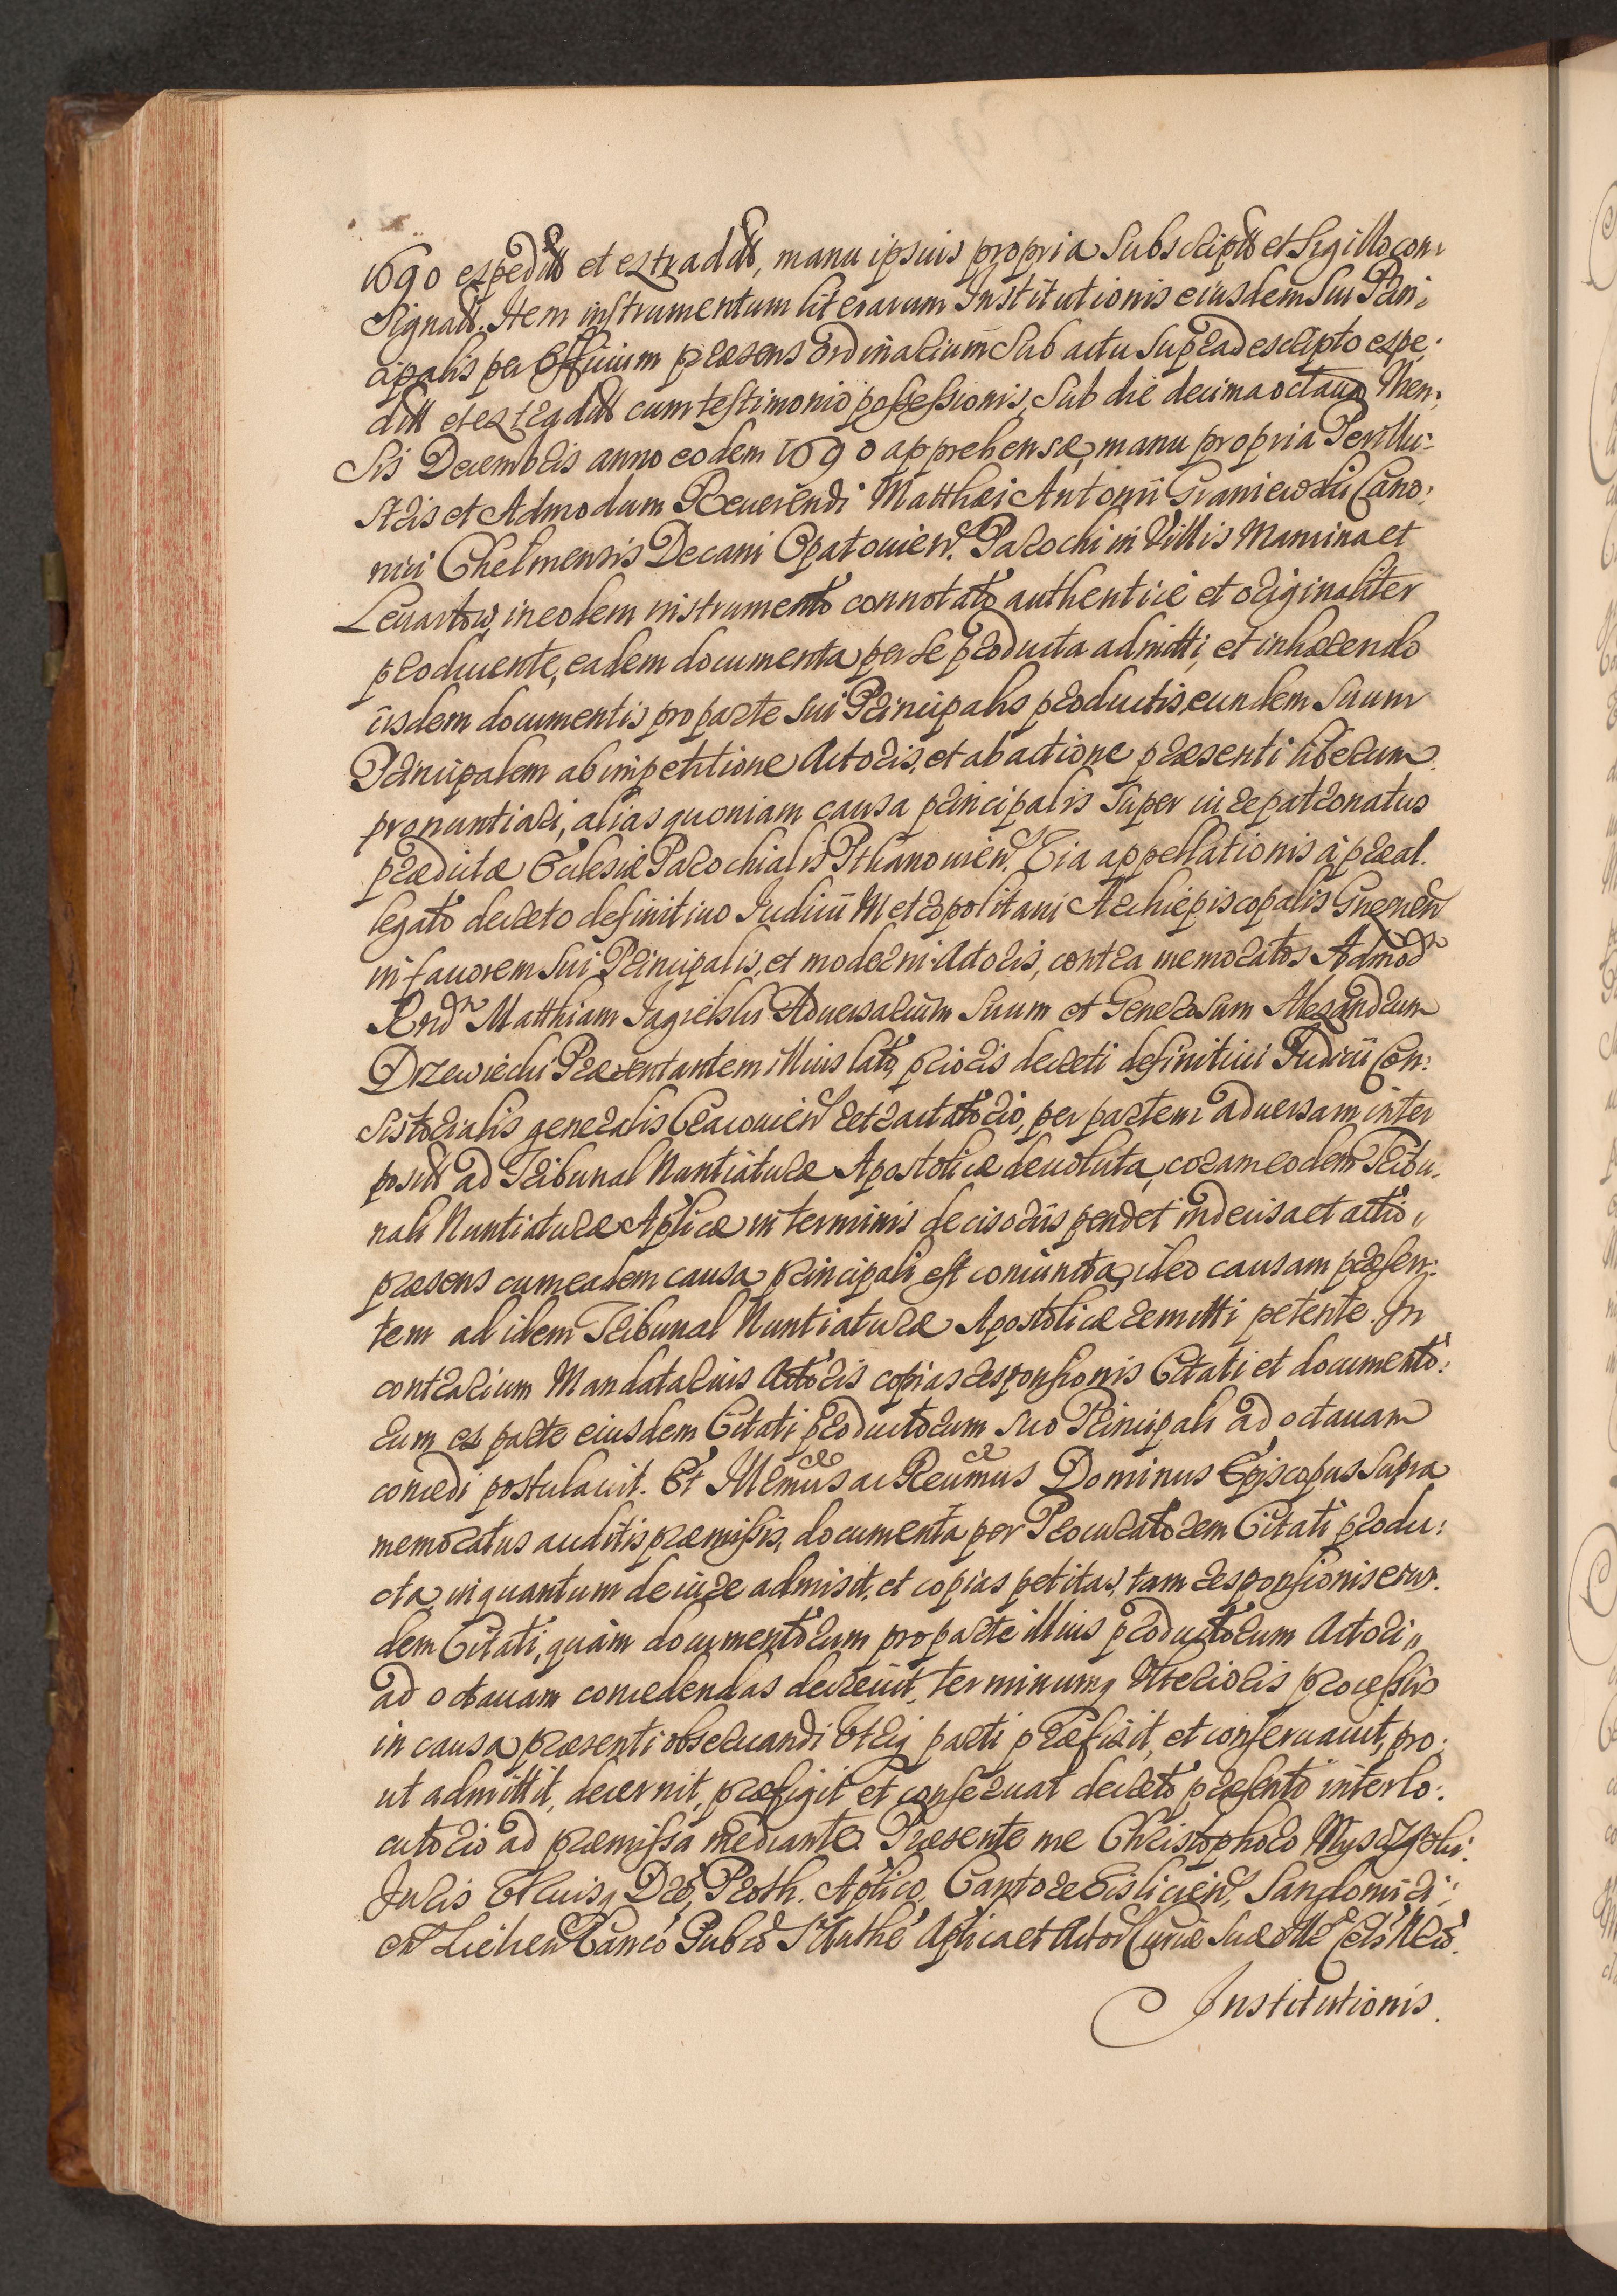 1690 expedit et extradit, manu ipsius propria Subscript et Sigillo con:
Signatt. Item instrumentum literarum Institutionis eiusdem Sui Prin:
cipalis per Officium præsens Ordinarium Sub actu Supradescripto expe:
dit et extradit cum testimonio possessionis, Sub die decima octaua Men:
Sis Decembris anno eodem 1690 apprehensæ, manu propria Perillu:
stris et Admodum Reuerendi Matthæi Antonii Graniewski Cano:
nici Chelmensis Decani Opatouien. Parochi in Villis Manina et
Leuartow, in eodem instrumento connotato authentice et originaliter
producente, eadem documenta per Se producta admitti, et inhærendo
iisdem documentis pro parte Sui Principalis productis, eundem Suum
Principalem ab impetitione Actoris, et ab actione præsenti liberum
pronuntiari, alias quoniam causa principalis Super iure patronatus
prædictæ Ecclesiæ Parochialis Pthanouien. Via appellationis à præal.
legato decreto definitiuo Iudicii Metropolitani Archiepiscopalis Gnesnen
in fauorem Sui Principalis, et moderni Actoris, contra memoratos Admod
Rnd Matthiam Jagielski Aduersarium Suum et Generosum Alexandrum
Drzewiecki Præsentantem illius lato, prioris decreti definitiui Iudicii Con:
Sistorialis generalis Cracouien retractatorio, per partem aduersam inter
posit ad Tribunal Nuntiaturæ Apostolicæ deuoluta, coram eodem Tribu:
nali Nuntiaturæ Aplicæ in terminis decisoriis pendet indecisa et actio,,
præsens cum eadem causa principali est coniuncta, ideo causam præsen:
tem ad idem Tribunal Nuntiaturæ Apostolicæ remitti petente. In
contrarium Mandatarius Actoris copias responsionis Citati et documento:
rum ex parte eiusdem Citati productorum Suo Principali ad octauam
concedi postulauit. Et Illmus ac Reumus Dominus Episcopus Supra
memoratus auditis præmissis, documenta per Procuratorem Citati produ:
cta, in quantum de iure admisit, et copias petitas, tam responsionis eius.
dem Citati, quàm documentorum pro parte illius productorum Actori,,
ad octauam concedendas decreuit, terminumq Vlterioris processus
in causa præsenti obseruandi Vtriq parti præfixit, et conseruauit, pro:
ut admittit, decernit, præfigit et conseruat decreto præsenti interlo:
cutorio ad præmissa mediante. Præsente me Christophoro
Juris Vtriusq Dre, Proth. Aplico, Cantore Vislicien, Sandomiri:
en Canco Publo S Authe Aplica et Actor Curiæ Suæ
Institutionis.